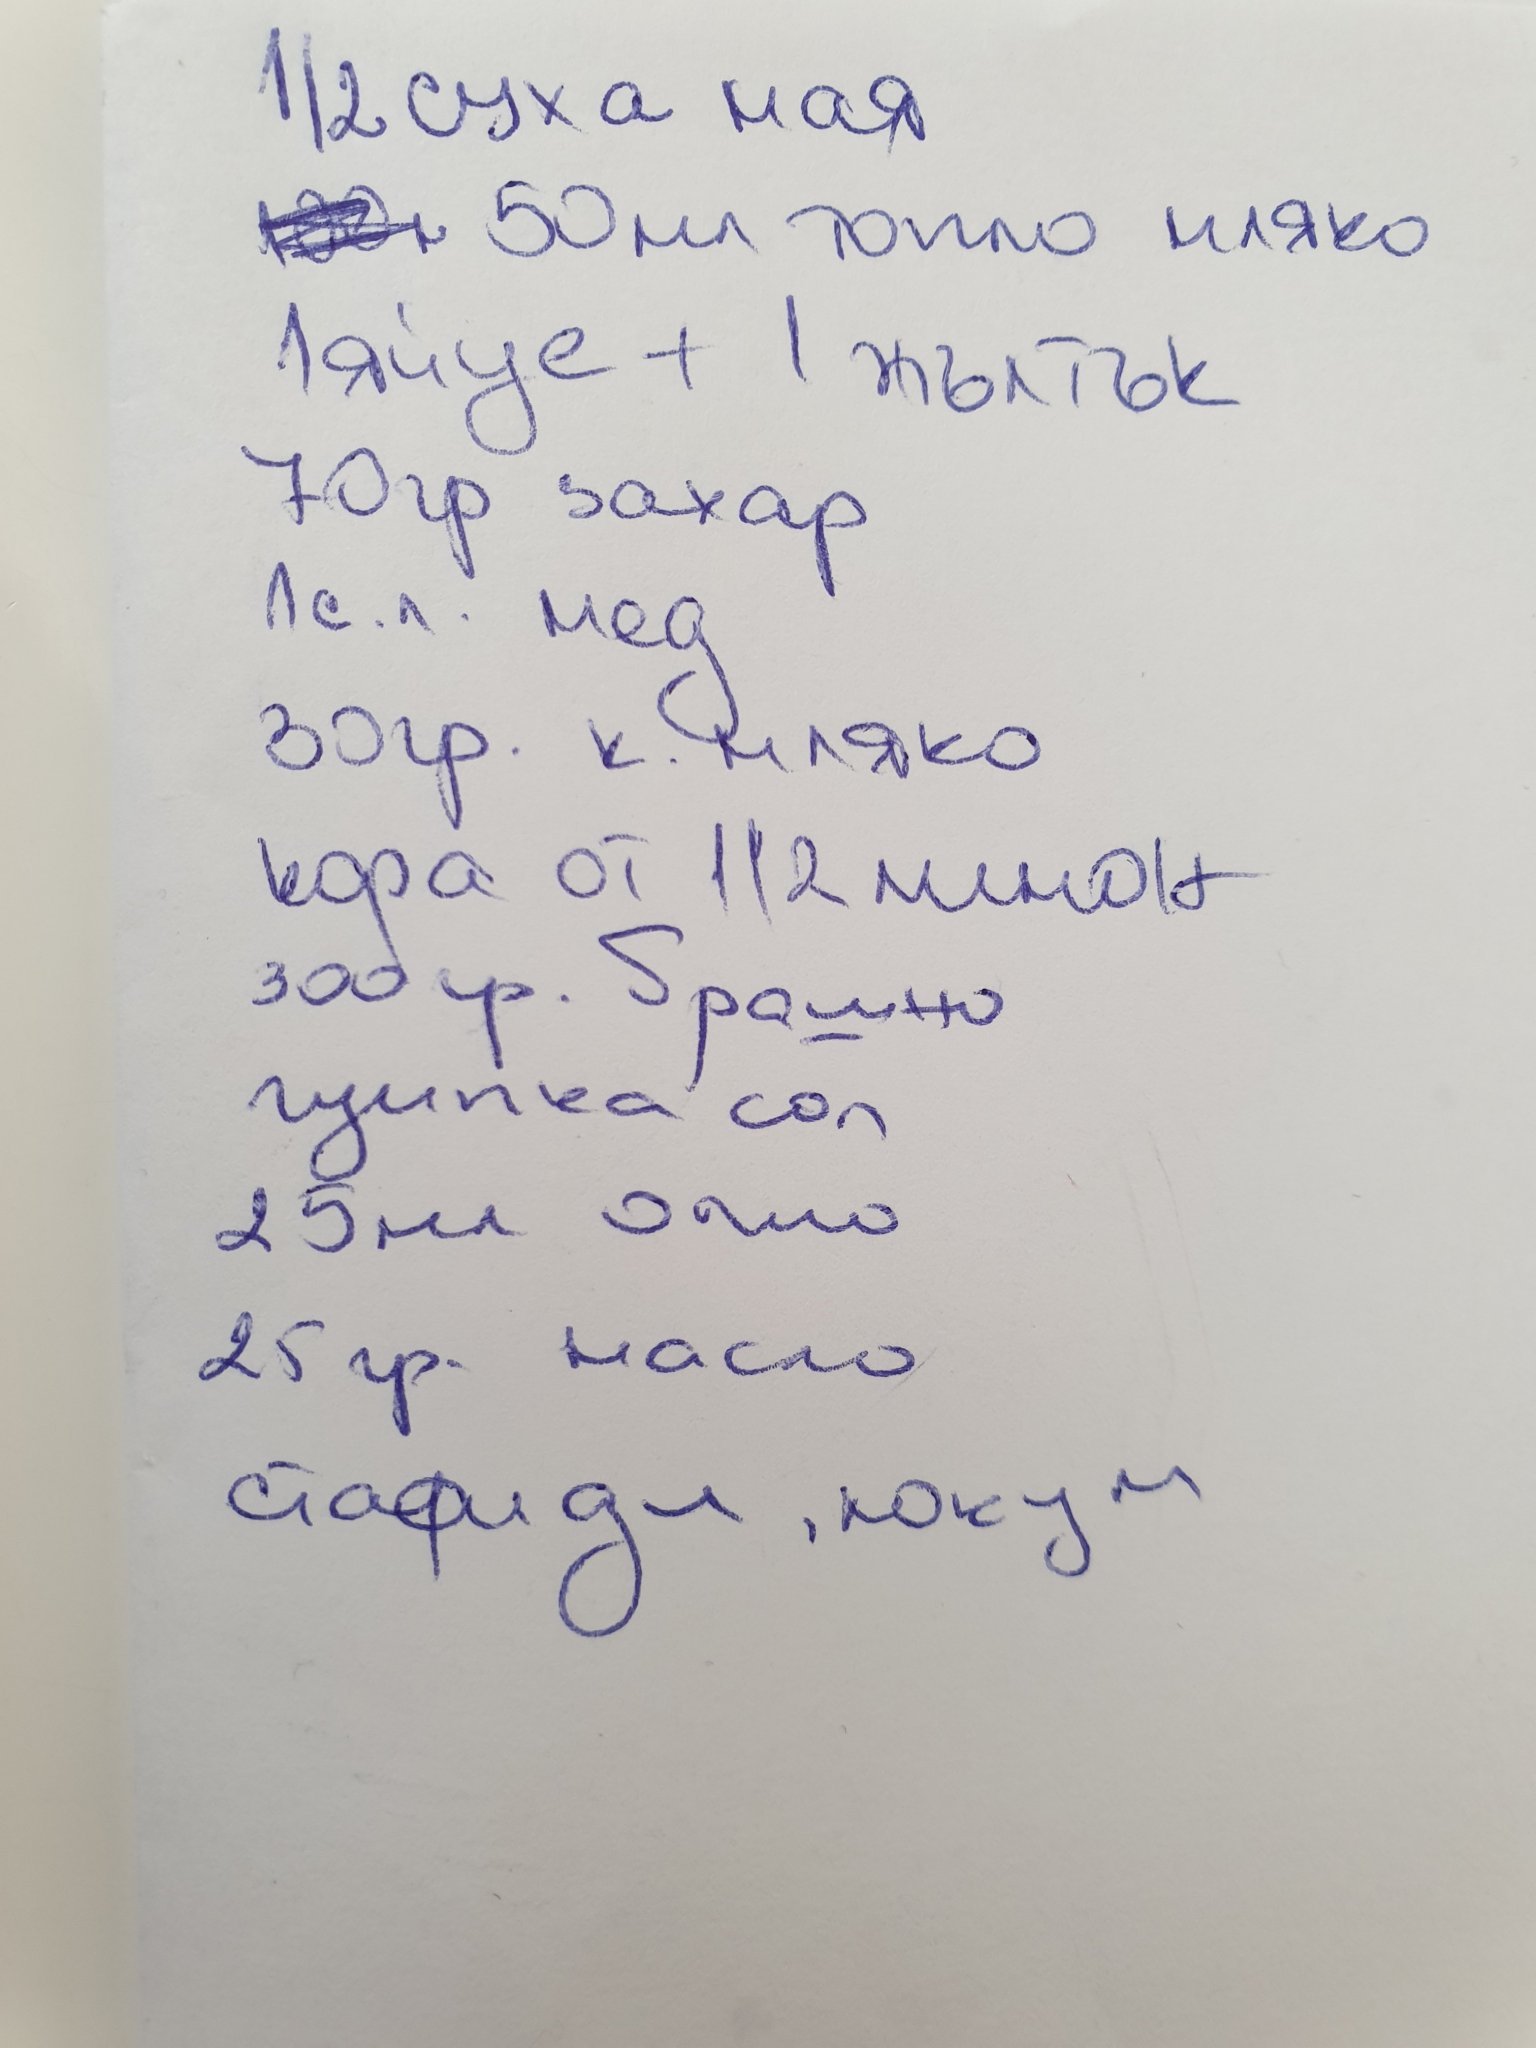 1/2 суха мая
50мл топло мляко
1 яйце + 1 жълтък
70гр захар
1с.л. мед
30гр. к. мляко
кора от 1/2 лимон
300гр. брашно
щипка сол
25мл олио
25гр. масло
стафиди, локум